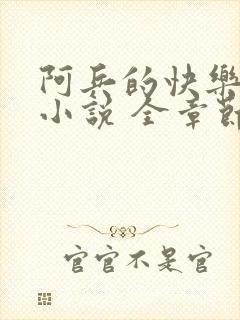 阿兵的快樂
小說 全章節
官官不是官